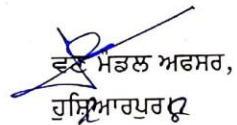 ਵਣ ਮੰਡਲ ਅਫਸਰ,
ਹੁਸ਼ਿਆਰਪੁਰ